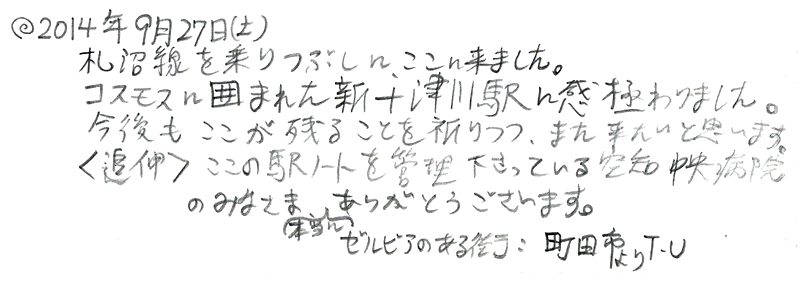 ◎2014年9月27日(土)
札沼線を乗りつぶしに、ここに来ました。
コスモスに囲まれた新十津川駅に感極わりました。
今後もここが残ることを祈りつつ、また来たいと思います。
<追伸>ここの駅ノートを管理下さっている空知中央病院
のみなさま、本当にありがとうございます。
ゼルビアのある街:町田市よりT.U